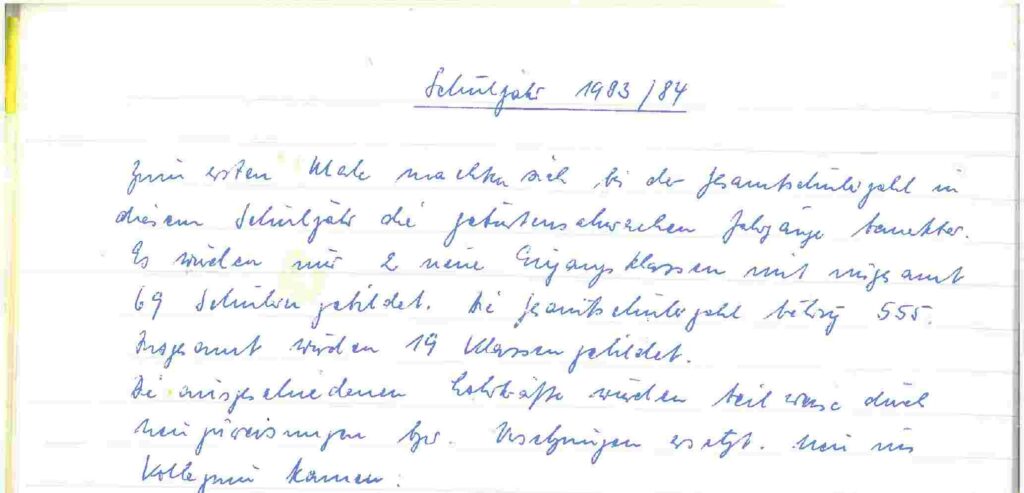 Schuljahr 1983/84
Zum ersten Male machten sich bei der Gesamtschülerzahl in
diesem Schuljahr die geburtenschwachen Jahrgänge bemerkbar.
Es wurden nur 2 neue Eingangsklassen mit insgesamt
69 Schülern gebildet. Die Gesamtschülerzahl betrug 555.
Insgesamt wurden 19 Klassen gebildet.
Die ausgeschiedenen Lehrkräfte wurden teilweise durch
Neuzuweisungen bzw. Versetzungen ersetzt. Neu ins
Kollegium kamen: